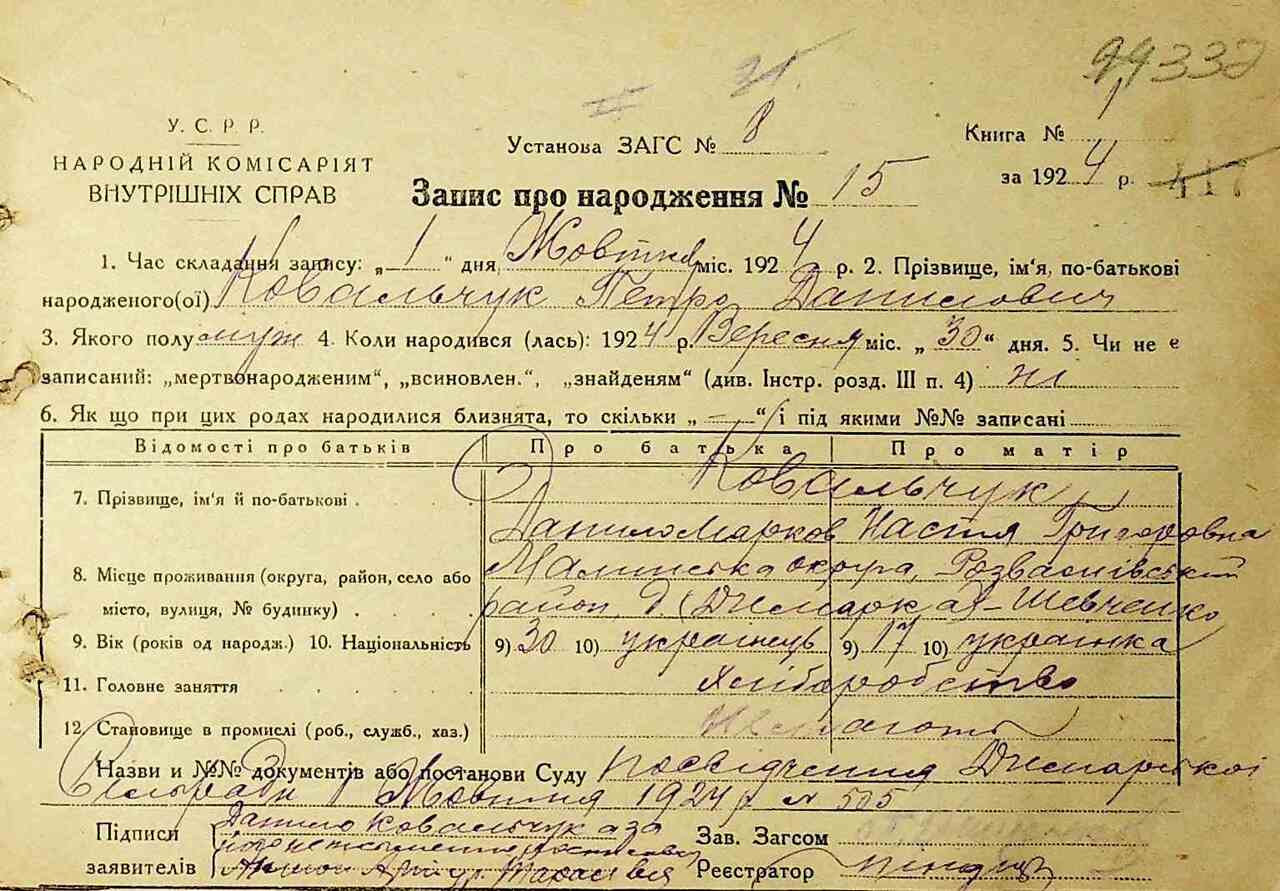 99332
У. С. Р. Р.
НАРОДНІЙ КОМІСАРІЯТ
ВНУТРІШНІХ СПРАВ
Установа ЗАГС № 8
Книга № 1
за 1924 р. 417
Запис про народження № 15
1. Час складання запису: „1" дня Жовтня міс. 1924 р. 2. Прізвище, ім'я, по-батькові
народженого(ої) Ковальчук Петро Данилович
3. Якого полу муж 4. Коли народився (лась): 1924 р. Вересня міс. „30" дня. 5. Чи не є
записаний: „мертвонародженим", „всиновлен.", „знайденям" (див. Інстр. розд. III п. 4) ні
6. Як що при цих родах народилися близнята, то скільки „—" і під якими №№ записані
Відомості про батьків Про батька Про матір
7. Прізвище, ім'я й по-батькові Ковальчук
Данило Марков Настя Григоровна
8. Місце проживання (округа, район, село або Малинська округа, Розважівський
місто, вулиця, № будинку) район Шевченко
9. Вік (років од народж.) 10. Національність 9) 30 10) українець 9) 17 10) українка
11. Головне заняття Хліборобство
12. Становище в промислі (роб., служб., хаз.)
Назви и №№ документів або постанови Суду посвідчення Димарської
Сельради 1 Жовтня 1924 р № 505
Підписи Данило Ковальчук а за
заявителів
Зав. Загсом
Реєстратор